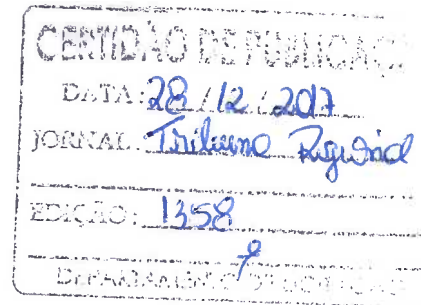 CERTIDÃO DE PUBLICAÇÃ
DATA: 28/12/2017
JORNAL: Tribuna Regional
EDIÇÃO: 1358
DEPARTAMENTO DE